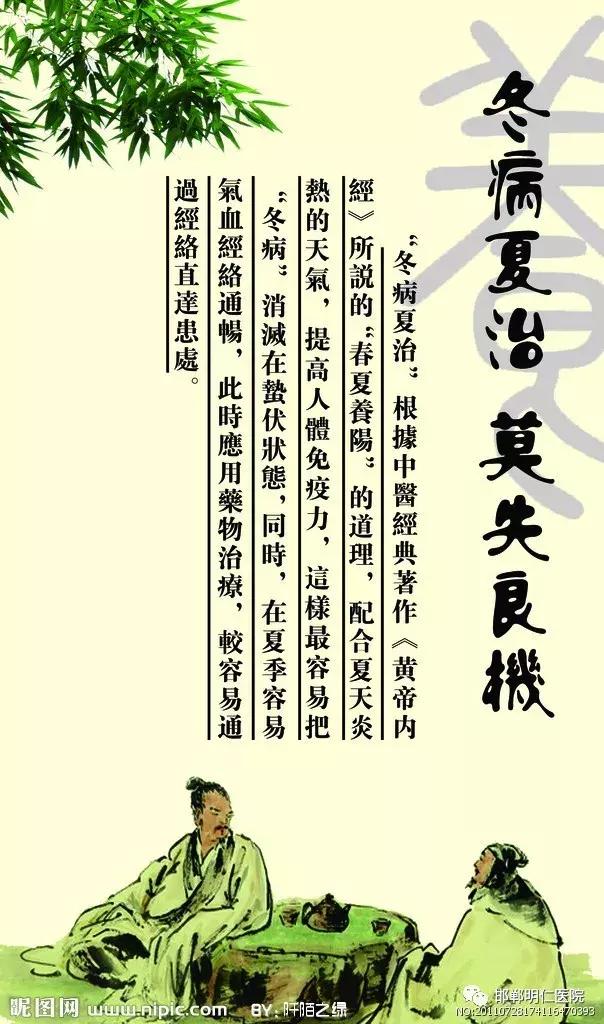 冬病夏治 莫失良機
養
“冬病夏治”根據中醫經典著作《黄帝内
經》所説的“春夏養陽”的道理，配合夏天炎
熱的天氣，提高人體免疫力，這樣最容易把
“冬病”消滅在蟄伏狀態，同時，在夏季容易
氣血經絡通暢，此時應用藥物治療，較容易通
過經絡直達患處。
昵图网 www.nipic.com BY：阡陌之绿
邯郸明仁医院
NO:20110723174116470393